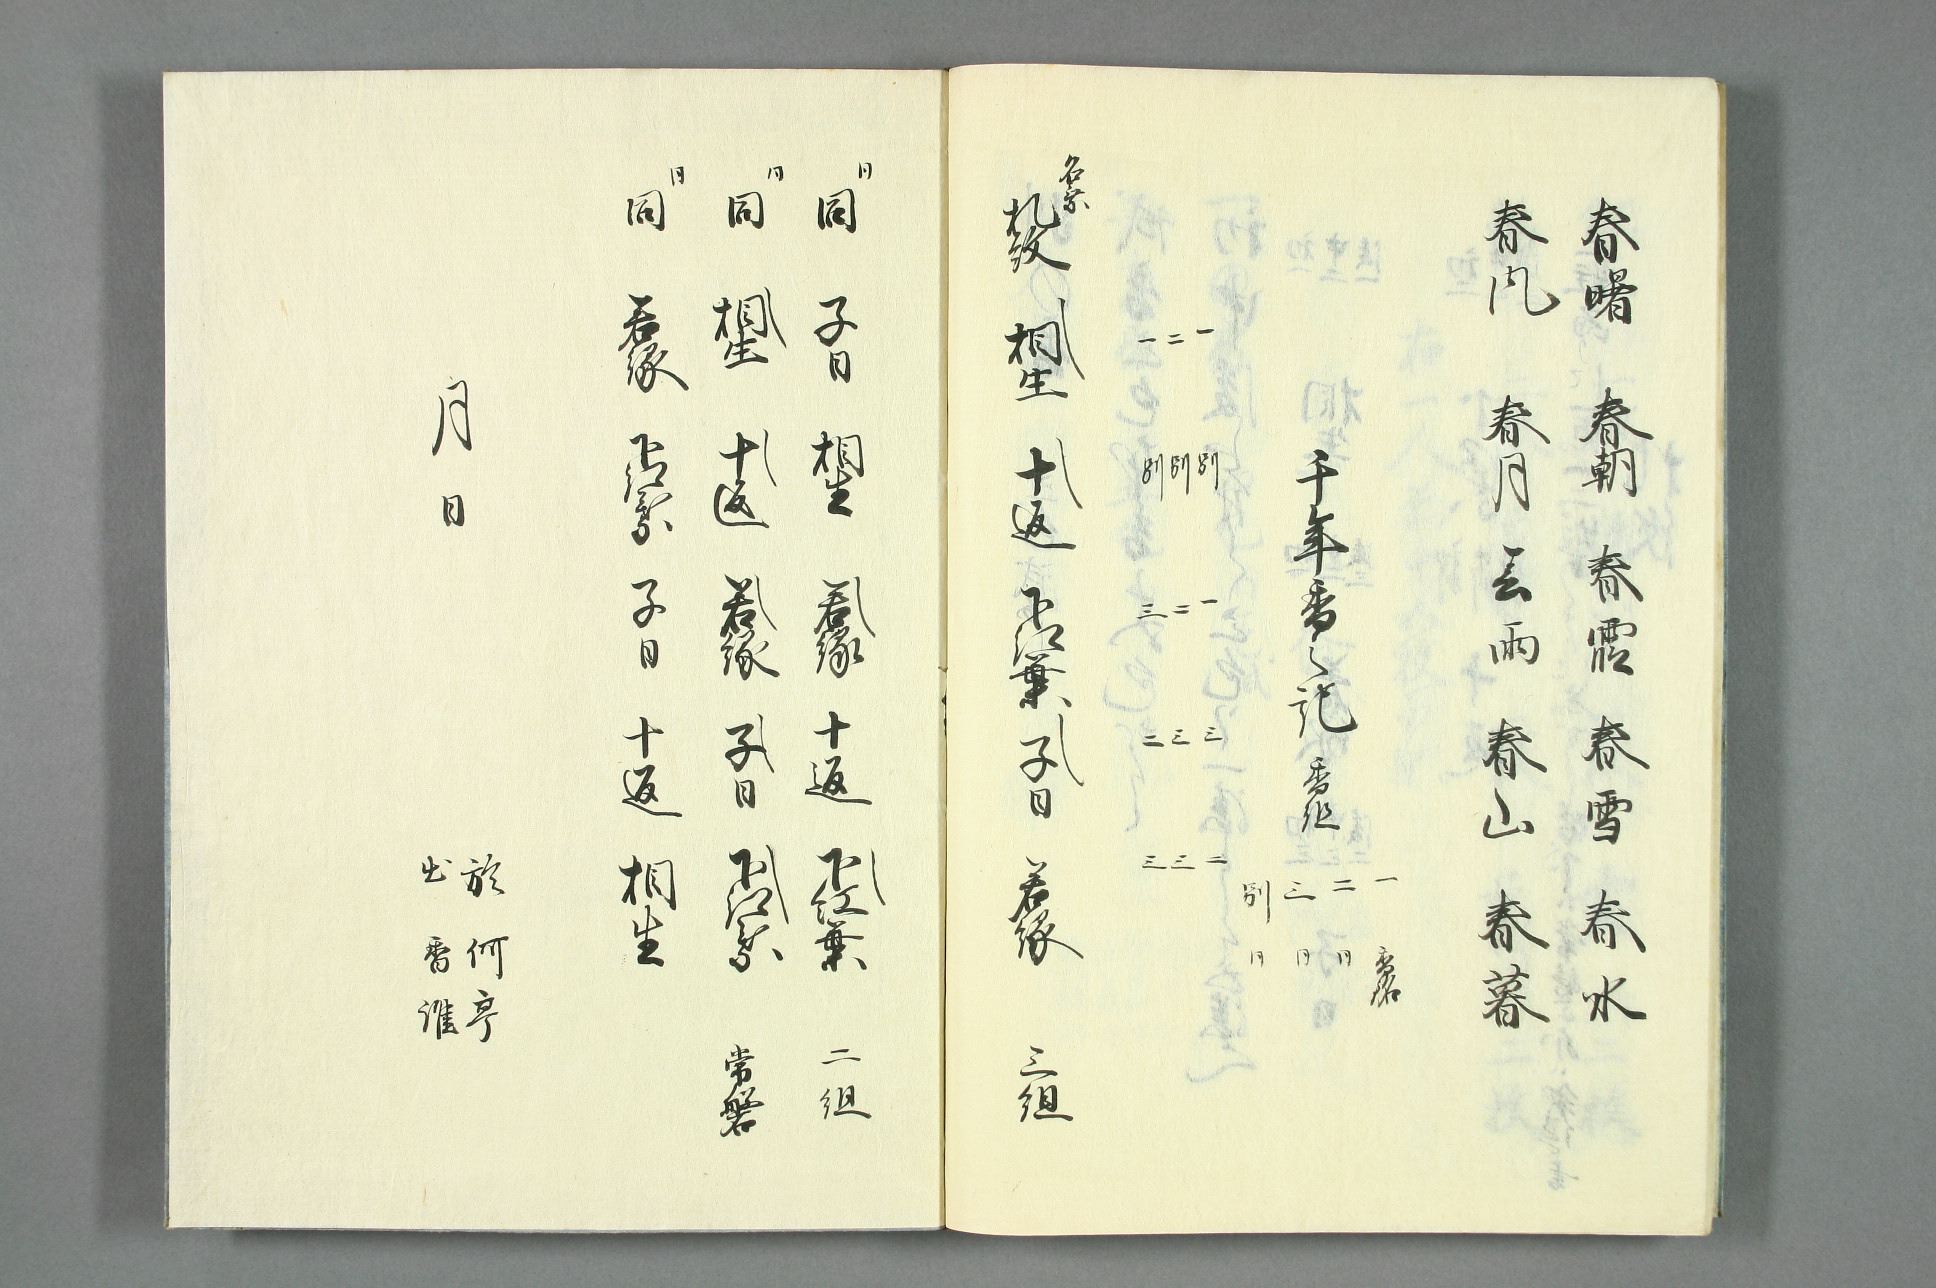 春曙 春朝 春霞 春雪 春水
春風 春月 春雨 春山 春暮
千年香之記 香組
一 香名
二 同
三 同
別 同
一 別 一 三 二
二 別 二 三 三
一 別 三 二 三
名乗 札紋 相生 十返 下紅葉 子日 若緑 三組
同 同 子日 相生 若緑 十返 下紅葉 二組
同 同 相生 十返 若緑 子日 下紅葉 常磐
同 同 若緑 下紅葉 子日 十返 相生
月 日
於 何亭
出香 誰